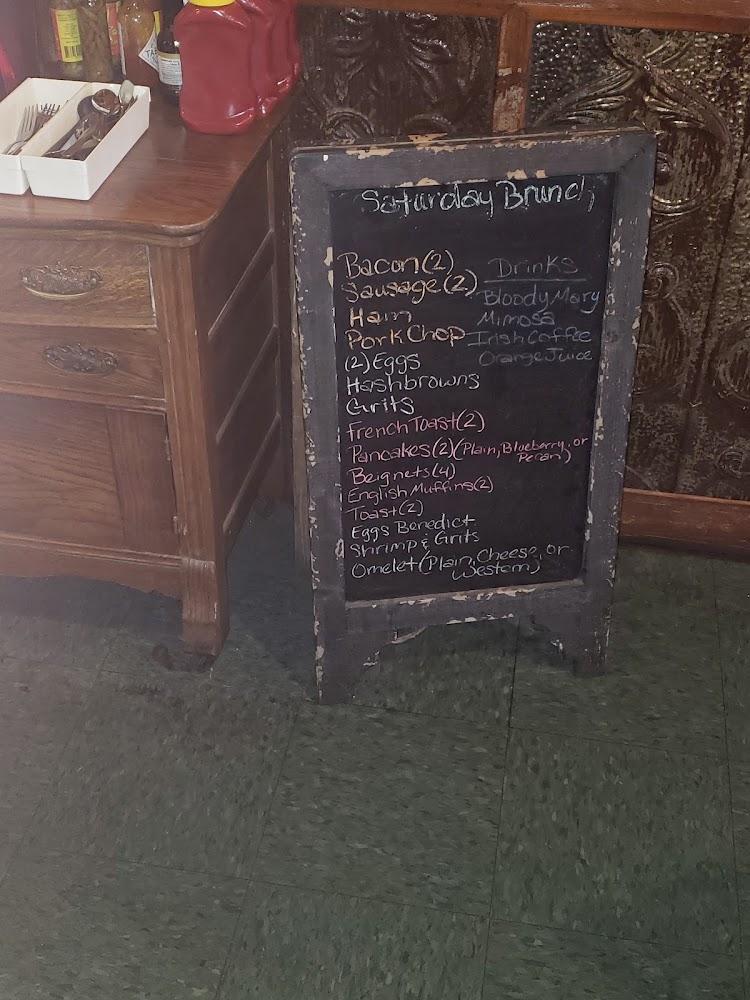 Saturday Brunch
Bacon(2)
Sausage(2)
Ham
Pork Chop
(2) Eggs
Hashbrowns
Grits
French Toast(2)
Pancakes(2)(Plain, Blueberry, or
Pecan)
Beignets(4)
English Muffins(2)
Toast(2)
Eggs Benedict
Shrimp & Grits
Omelet (Plain, Cheese, or
Western)
Drinks
Bloody Mary
Mimosa
Irish Coffee
Orange Juice